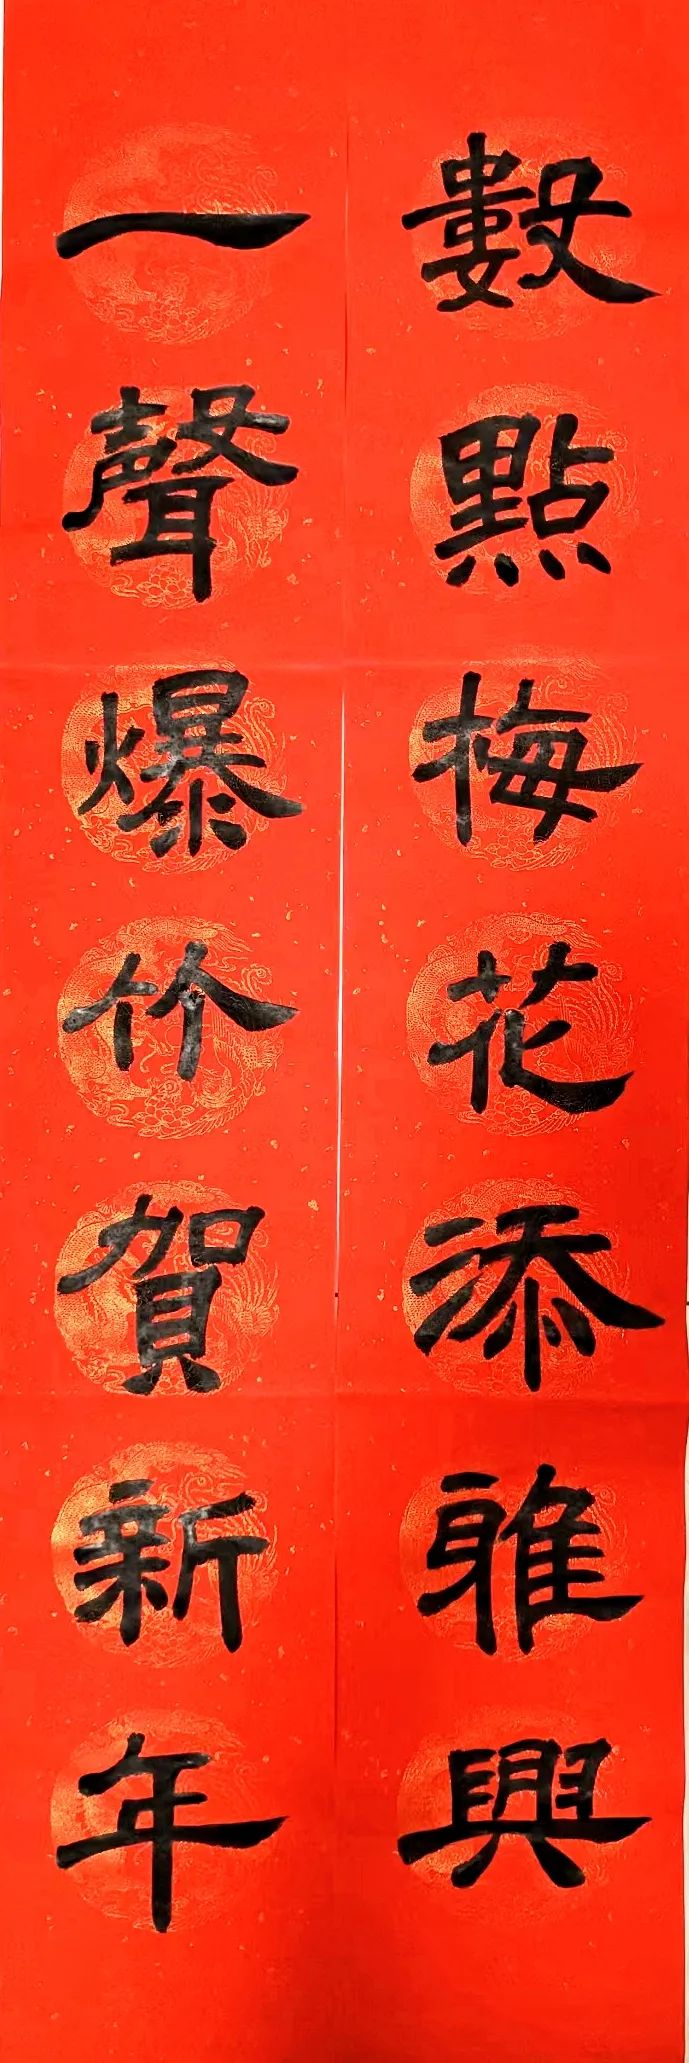 數點梅花添雅興
一聲爆竹賀新年